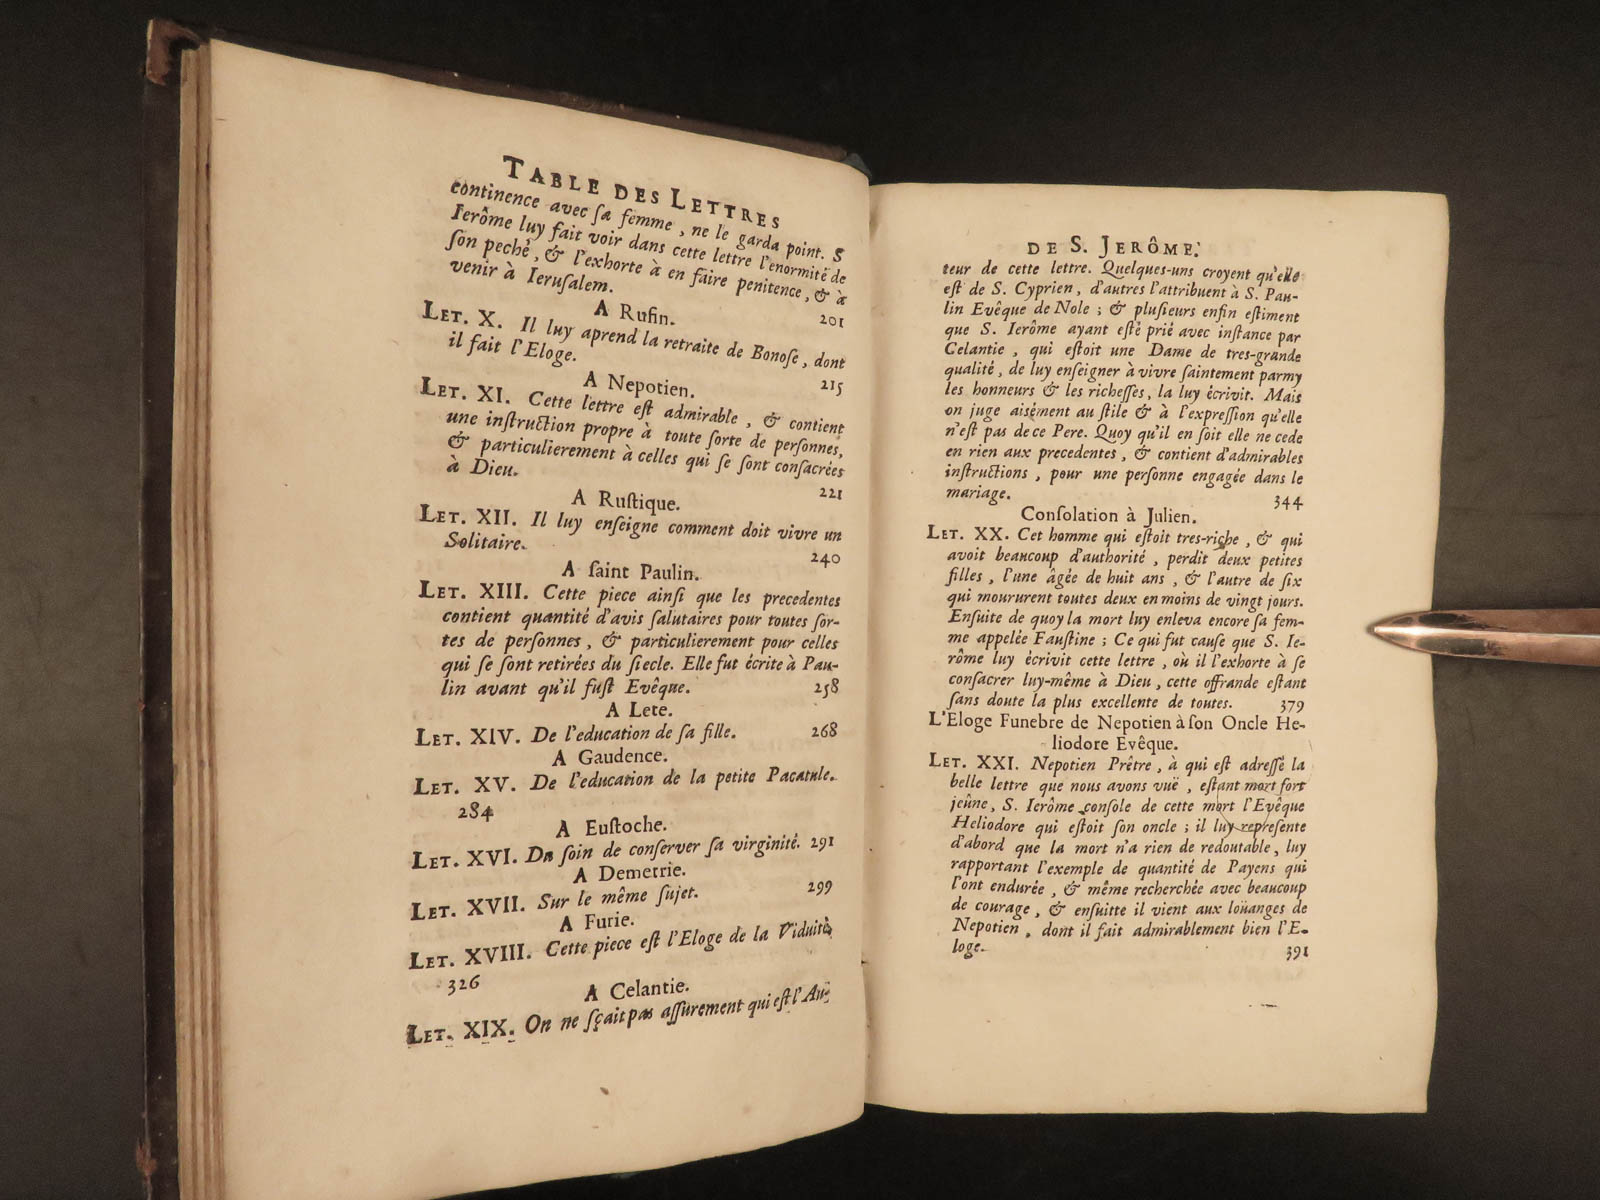 TABLE DES LETTRES
continence avec ſa femme, ne le garda point. S
Ierôme luy fait voir dans cette lettre l'enormité de
ſon peché, & l'exhorte à en faire penitence, & à
venir à Ieruſalem. 201
A Rufin.
LET. X. Il luy aprend la retraite de Bonoſe, dont
il fait l'Eloge. 215
A Nepotien.
LET. XI. Cette lettre eſt admirable, & contient
une inſtruction propre à toute ſorte de perſonnes,
& particulierement à celles qui se ſont conſacrées
à Dieu. 221
A Ruſtique.
LET. XII. Il luy enſeigne comment doit vivre un
Solitaire. 240
A ſaint Paulin.
LET. XIII. Cette piece ainſi que les precedentes
contient quantité d'avis ſalutaires pour toutes ſor-
tes de perſonnes, & particulierement pour celles
qui ſe ſont retirées du ſiecle. Elle fut écrite à Pau-
lin avant qu'il fuſt Evêque. 258
A Lete.
LET. XIV. De l'education de ſa fille. 268
A Gaudence.
LET. XV. De l'education de la petite Pacatule.
284
A Euſtoche.
LET. XVI. Du ſoin de conſerver ſa virginité. 291
A Demetrie.
LET. XVII. Sur le même ſujet. 299
A Furie.
LET. XVIII. Cette piece eſt l'Eloge de la Viduité
326
A Celantie.
LET. XIX. On ne ſçait pas aſſurement qui eſt l'Au-
DE S. JERÔME.
teur de cette lettre. Quelques-uns croyent qu'elle
eſt de S. Cyprien, d'autres l'attribuent à S. Pau-
lin Evêque de Nole ; & pluſieurs enfin eſtiment
que S. Ierôme ayant eſté prié avec inſtance par
Celantie, qui eſtoit une Dame de tres-grande
qualité, de luy enſeigner à vivre ſaintement parmy
les honneurs & les richeſſes, la luy écrivit. Mais
on juge aisément au ſtile & à l'expreſſion qu'elle
n'eſt pas de ce Pere. Quoy qu'il en ſoit elle ne cede
en rien aux precedentes, & contient d'admirables
inſtructions, pour une perſonne engagée dans le
mariage. 344
Conſolation à Julien.
LET. XX. Cet homme qui eſtoit tres-riche, & qui
avoit beaucoup d'authorité, perdit deux petites
filles, l'une âgée de huit ans, & l'autre de ſix
qui moururent toutes deux en moins de vingt jours.
Ensuite de quoy la mort luy enleva encore ſa fem-
me appelée Fauſtine ; Ce qui fut cauſe que S. Ie-
rôme luy écrivit cette lettre, où il l'exhorte à ſe
conſacrer luy-même à Dieu, cette offrande eſtant
ſans doute la plus excellente de toutes. 379
L'Eloge Funebre de Nepotien à ſon Oncle He-
liodore Evêque.
LET. XXI. Nepotien Prêtre, à qui eſt adreſſé la
belle lettre que nous avons vuë, eſtant mort fort
jeûne, S. Ierôme console de cette mort l'Evêque
Heliodore qui eſtoit ſon oncle ; il luy repreſente
d'abord que la mort n'a rien de redoutable, luy
rapportant l'exemple de quantité de Payens qui
l'ont endurée, & même recherchée avec beaucoup
de courage, & enſuitte il vient aux loüanges de
Nepotien, dont il fait admirablement bien l'E-
loge. 391